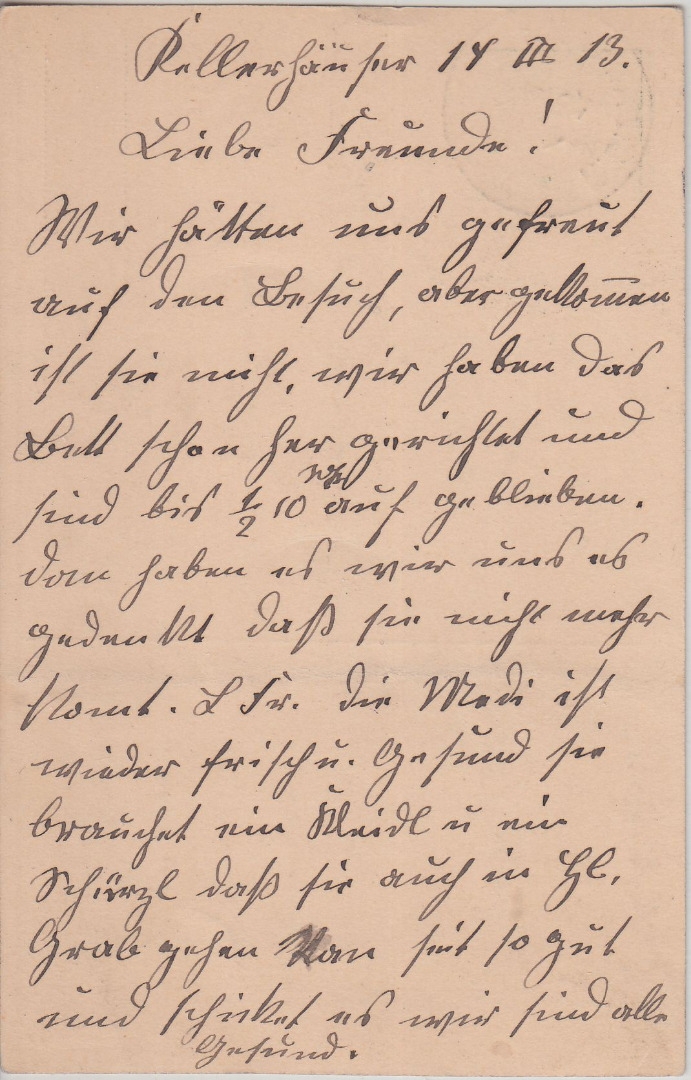 Kellerhäuser 14 III 13.
Liebe Freunde!
Wir hätten uns gefreut
auf den Besuch, aber gekommen
ist sie nicht, wir haben das
Bett schon her gerichtet und
sind bis ½ 10 auf geblieben.
dan haben es wir uns es
gedenkt daß sie nicht mehr
komt. L Fr. die Medi ist
wieder frisch u. Gesund sie
brauchet ein Kleidl u ein
Schürzl daß sie auch in Hl.
Grab gehen kan seit so gut
und schicket es wir sind alle
Gesund.